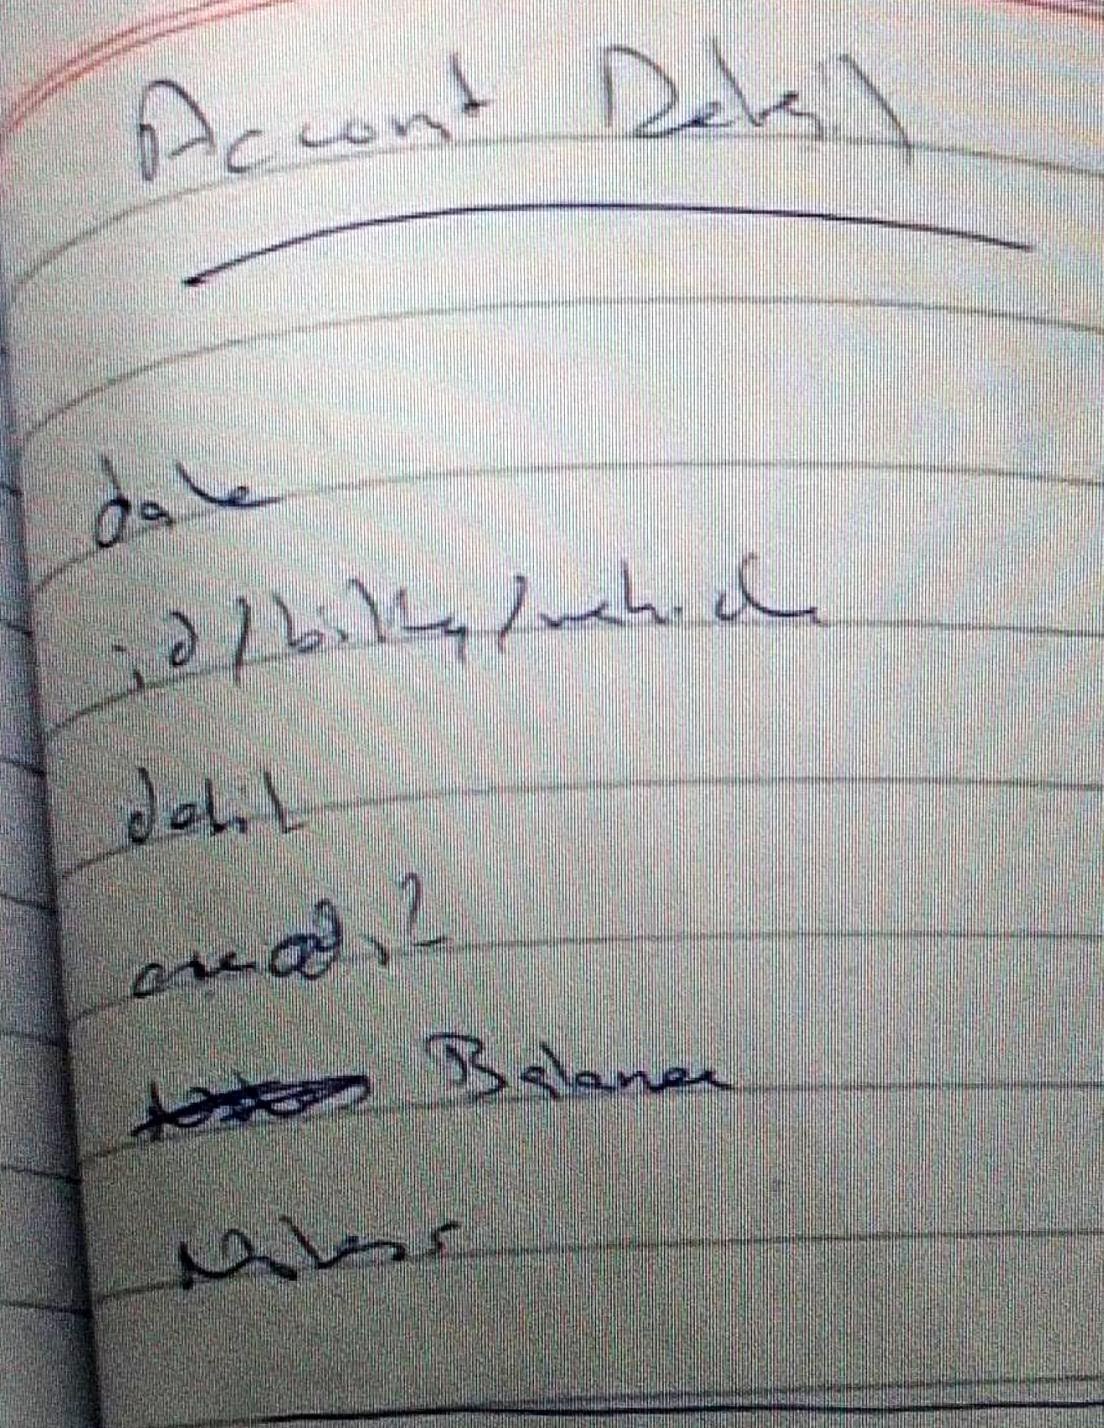 Account Detail
date
id/bilty/vehicle
debit
credit
Balance